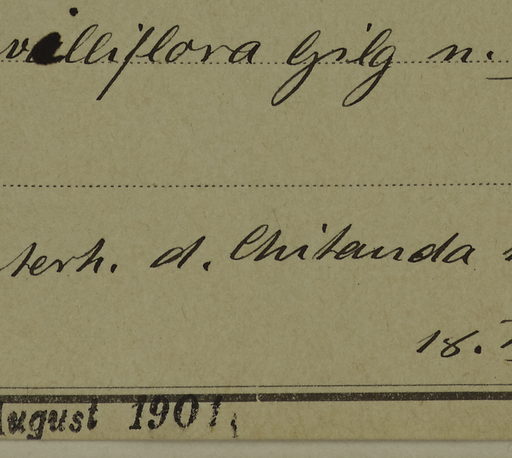 villiflora Gilg n.
terh. d. Chitanda
18.
August 1901.